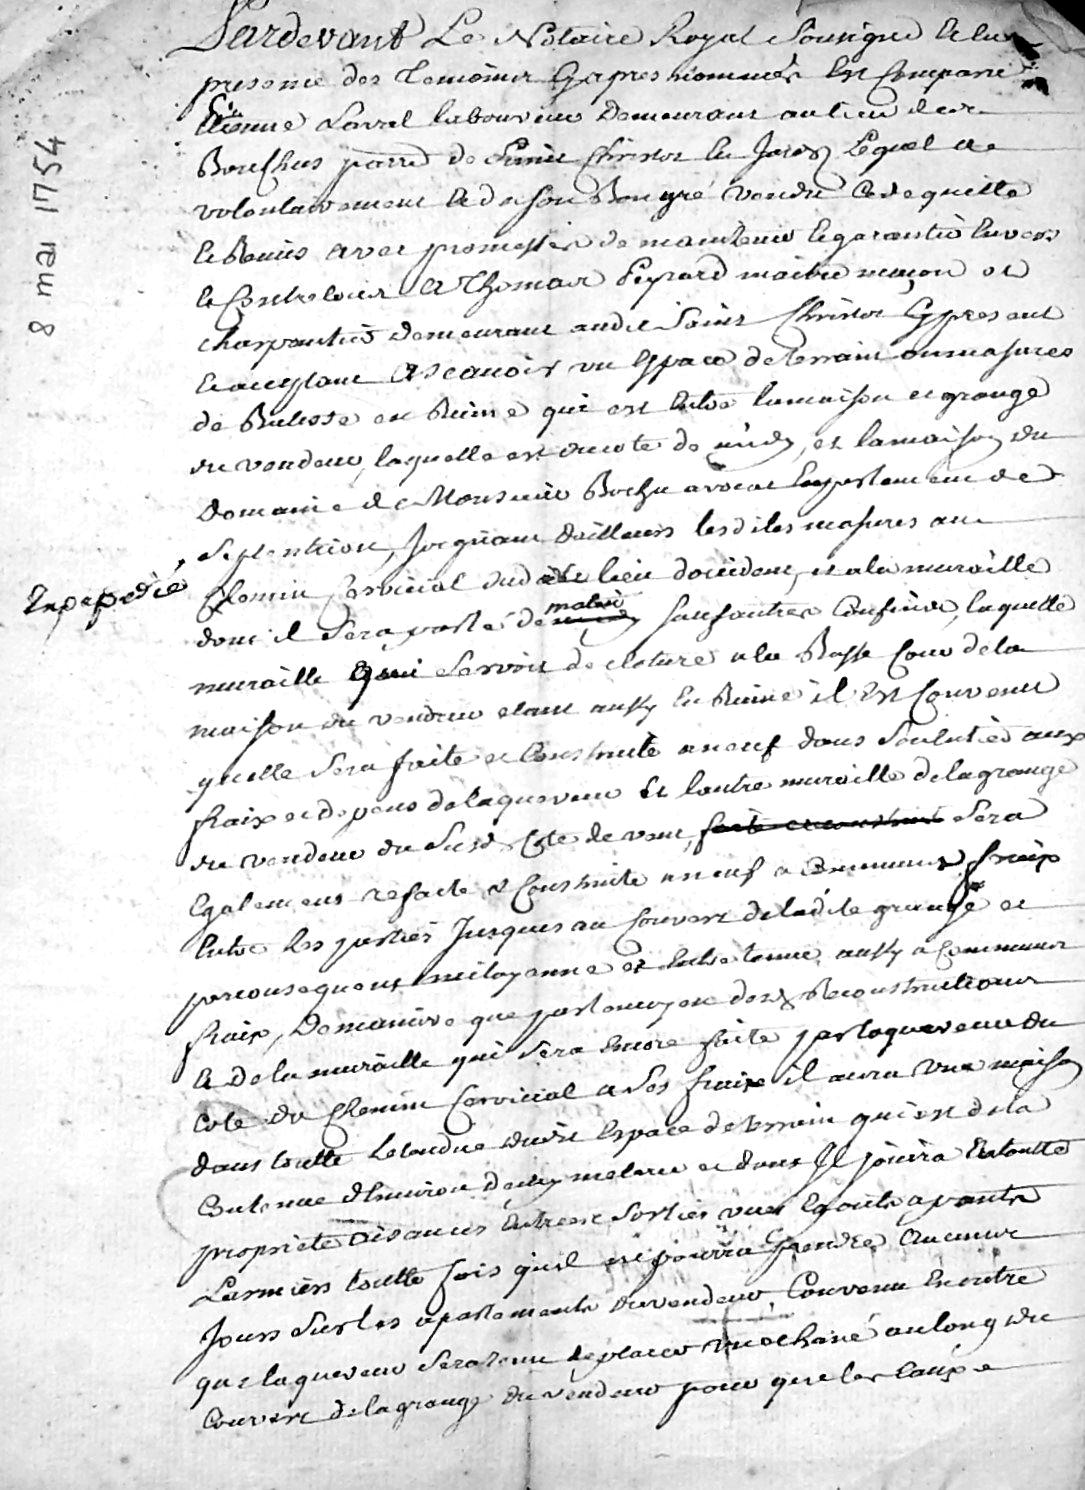 8 mai 1754
Expedié
Pardevant Le Notaire Royal Sousigné & En la
presence des Temoins Cyapres nommés Est Comparu
Etienne Larral laboureur Demeurant au lieu de
Bouchus parre de Saint Christot En Jares Lequel a
volontairement & de son Bon gré vendu Cede quitte
& Remis avec promesses de maintenir & garantir Envers
& Contre tous A Thomas Peyrard maitre maçon et
charpentier demeurant audit Saint Christot Cypresent
& acceptant Ascavoir un Espace de terrain ou masures
de Batisse en Ruine qui est Entre la maison et grange
du vendeur, laquelle est du coté de midy, et la maison du
domaine de Monsieur Bochu avocat En parlement de
Septentrion, Joignant dailleurs lesdites masures au
Chemin Cervicial dudit lieu doccident, et a la muraille
dont il Sera parlé de matin Sauf autres Confins, laquelle
muraille Qui Servoit de cloture a la Basse Cour de la
maison du vendeur etant aussy En Ruine il Est Convenu
quelle Sera faite et Construite a neuf dans Son Entier aux
fraix et depens de laquereur Et lautre muraille de la grange
du vendeur du Susd. Coté de vent, faite et construite Sera
Egalement refaite & Construite a neuf a Communs fraix
Entre les parties Jusques au Couvert de ladite grange et
par consequent mitoyenne et Entretenue aussy a Communs
fraix, De maniere que par le moyen desd. Reconstructions
& de la muraille qui Sera Encore faite par laquereur du
Coté du Chemin Cervicial a Ses fraix il aura Une maison
dans toutte Letendue dudit Espace de terrain qui est de la
Contenue d'Environ demy metane et dont Il jouira En toutte
proprieté aisances Entrées Sorties vues Egouts apants
Larmiers toutte fois quil ne pourra prendre Aucuns
Jours Sur les apartements du vendeur, Convenu En outre
que laquereur Sera tenu de placer un echané au long du
Couvert de la grange du vendeur pour que les Eaux